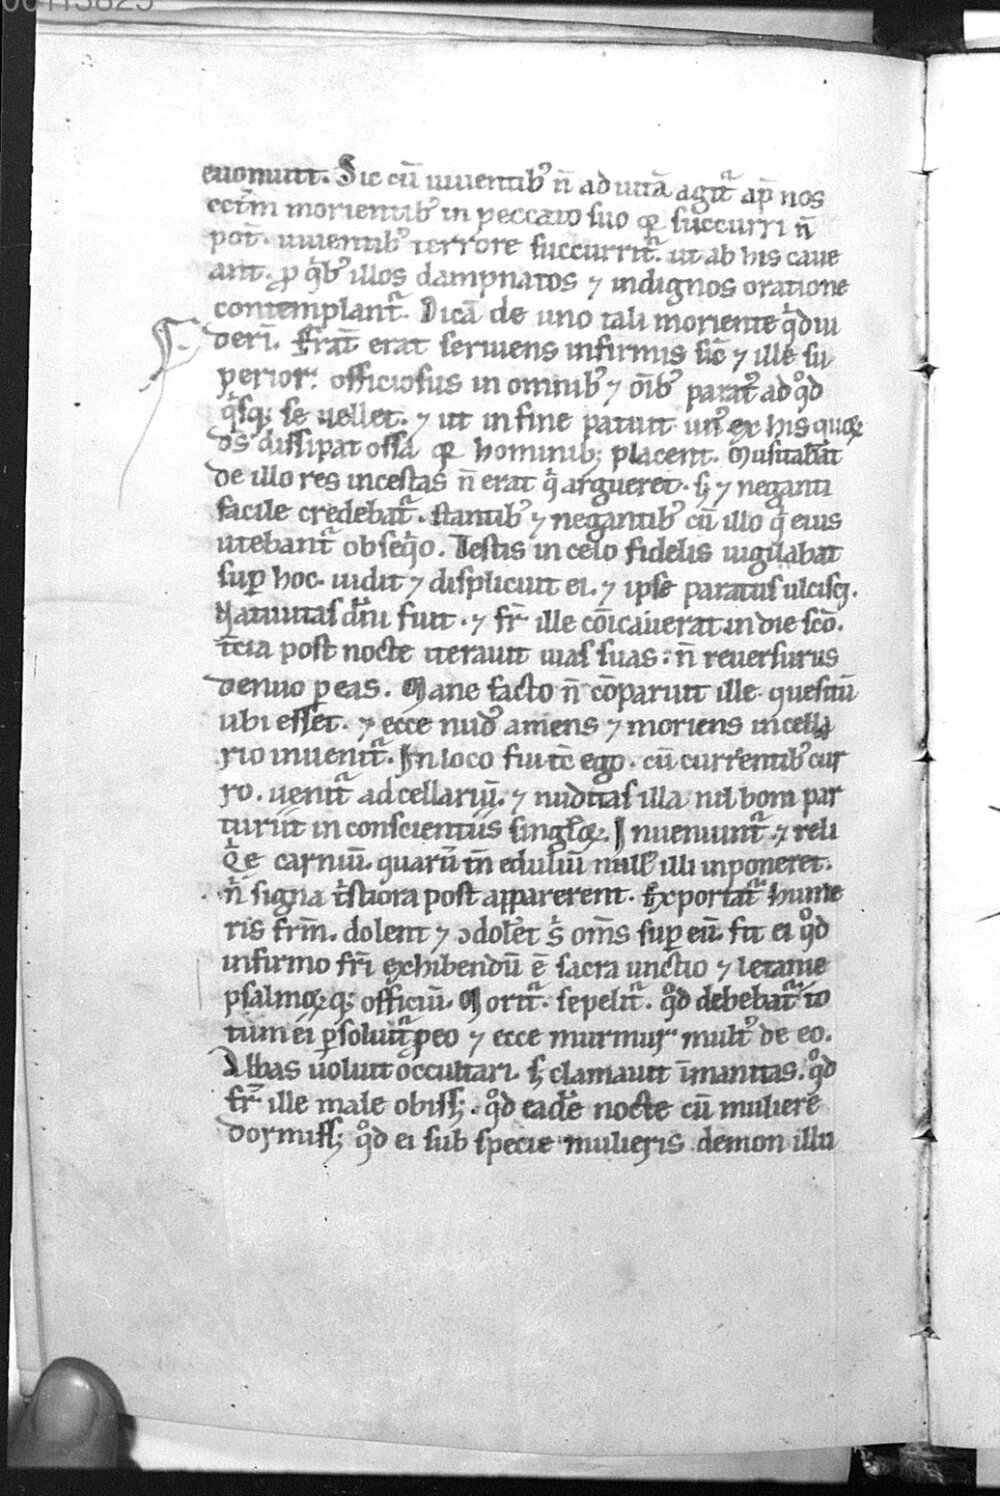 euomuit. Sic cū uiuentibꝰ n̄ ad uitā agit᷑ ap̄ nos
cet̄m morientibꝰ in peccato suo qꝛ succurri n̄
pot̄. uiuentibꝰ terrore succurrit᷑. ut ab his caue
ant. ꝓ qͥbꝰ illos dampnatos ⁊ indignos oratione
contemplant᷑. Dicā de uno tali moriente qͥd ui
deri. Frat̄ erat seruiens infirmis sic̄ ⁊ ille su
perior. officiosus in omnibꝰ ⁊ oībꝰ paratꝰ ad qͦd
qͥsqꝫ se uellet. ⁊ ut in fine patuit unꝰ ex his quoꝝ
d̄s dissipat ossa qꝛ hominibꝫ placent. Musitabāt
de illo res incestas n̄ erat qͥ argueret. sꝫ ⁊ neganti
facile credebat᷑. stantibꝰ ⁊ negantibꝰ cū illo qͥ eius
utebant᷑ obseqͥo. Testis in celo fidelis uigilabat
suꝑ hoc. uidit ⁊ displicuit ei. ⁊ ipse paratus ulcisci.
Natiuitas dn̄i fuit. ⁊ fr̄ ille cōicauerat in die scō.
t̄cia post nocte iterauit uias suas. n̄ reuersurus
denuo ꝑ eas. Mane facto n̄ cōparuit ille quesitū
ubi esset. ⁊ ecce nudꝰ amens ⁊ moriens in cella
rio inuenit᷑. In loco fui tc̄ ego. cū currentibꝰ cur
ro. uenit᷑ ad cellariū. ⁊ nuditas illa nil boni par
turiit in conscientiis singl̄oꝝ. Inueniunt᷑ ⁊ reli
qͥe carniū. quarū tn̄ eduliū null᷒ illi inponeret.
n̄ signa tͥstiora post apparerent. Exportat᷑ hume
ris frm̄. dolent ⁊ ↄdolēt sͥ om̄s suꝑ eū. fit ei qͦd
infirmo fr̄i exhibendū ē sacra unctio ⁊ letanie
psalmoꝝqꝫ officiū. Morit᷑. sepelit᷑. qͦd debebat᷑ to
tum ei ꝑsoluit᷑ ꝓ eo ⁊ ecce murmur multꝰ de eo.
Abbas uoluit occultari. sꝫ clamauit īmanitas. qͦd
fr̄ ille male obissꝫ. qͦd eadē nocte cū muliere
dormissꝫ qͦd ei sub specie mulieris demon illu